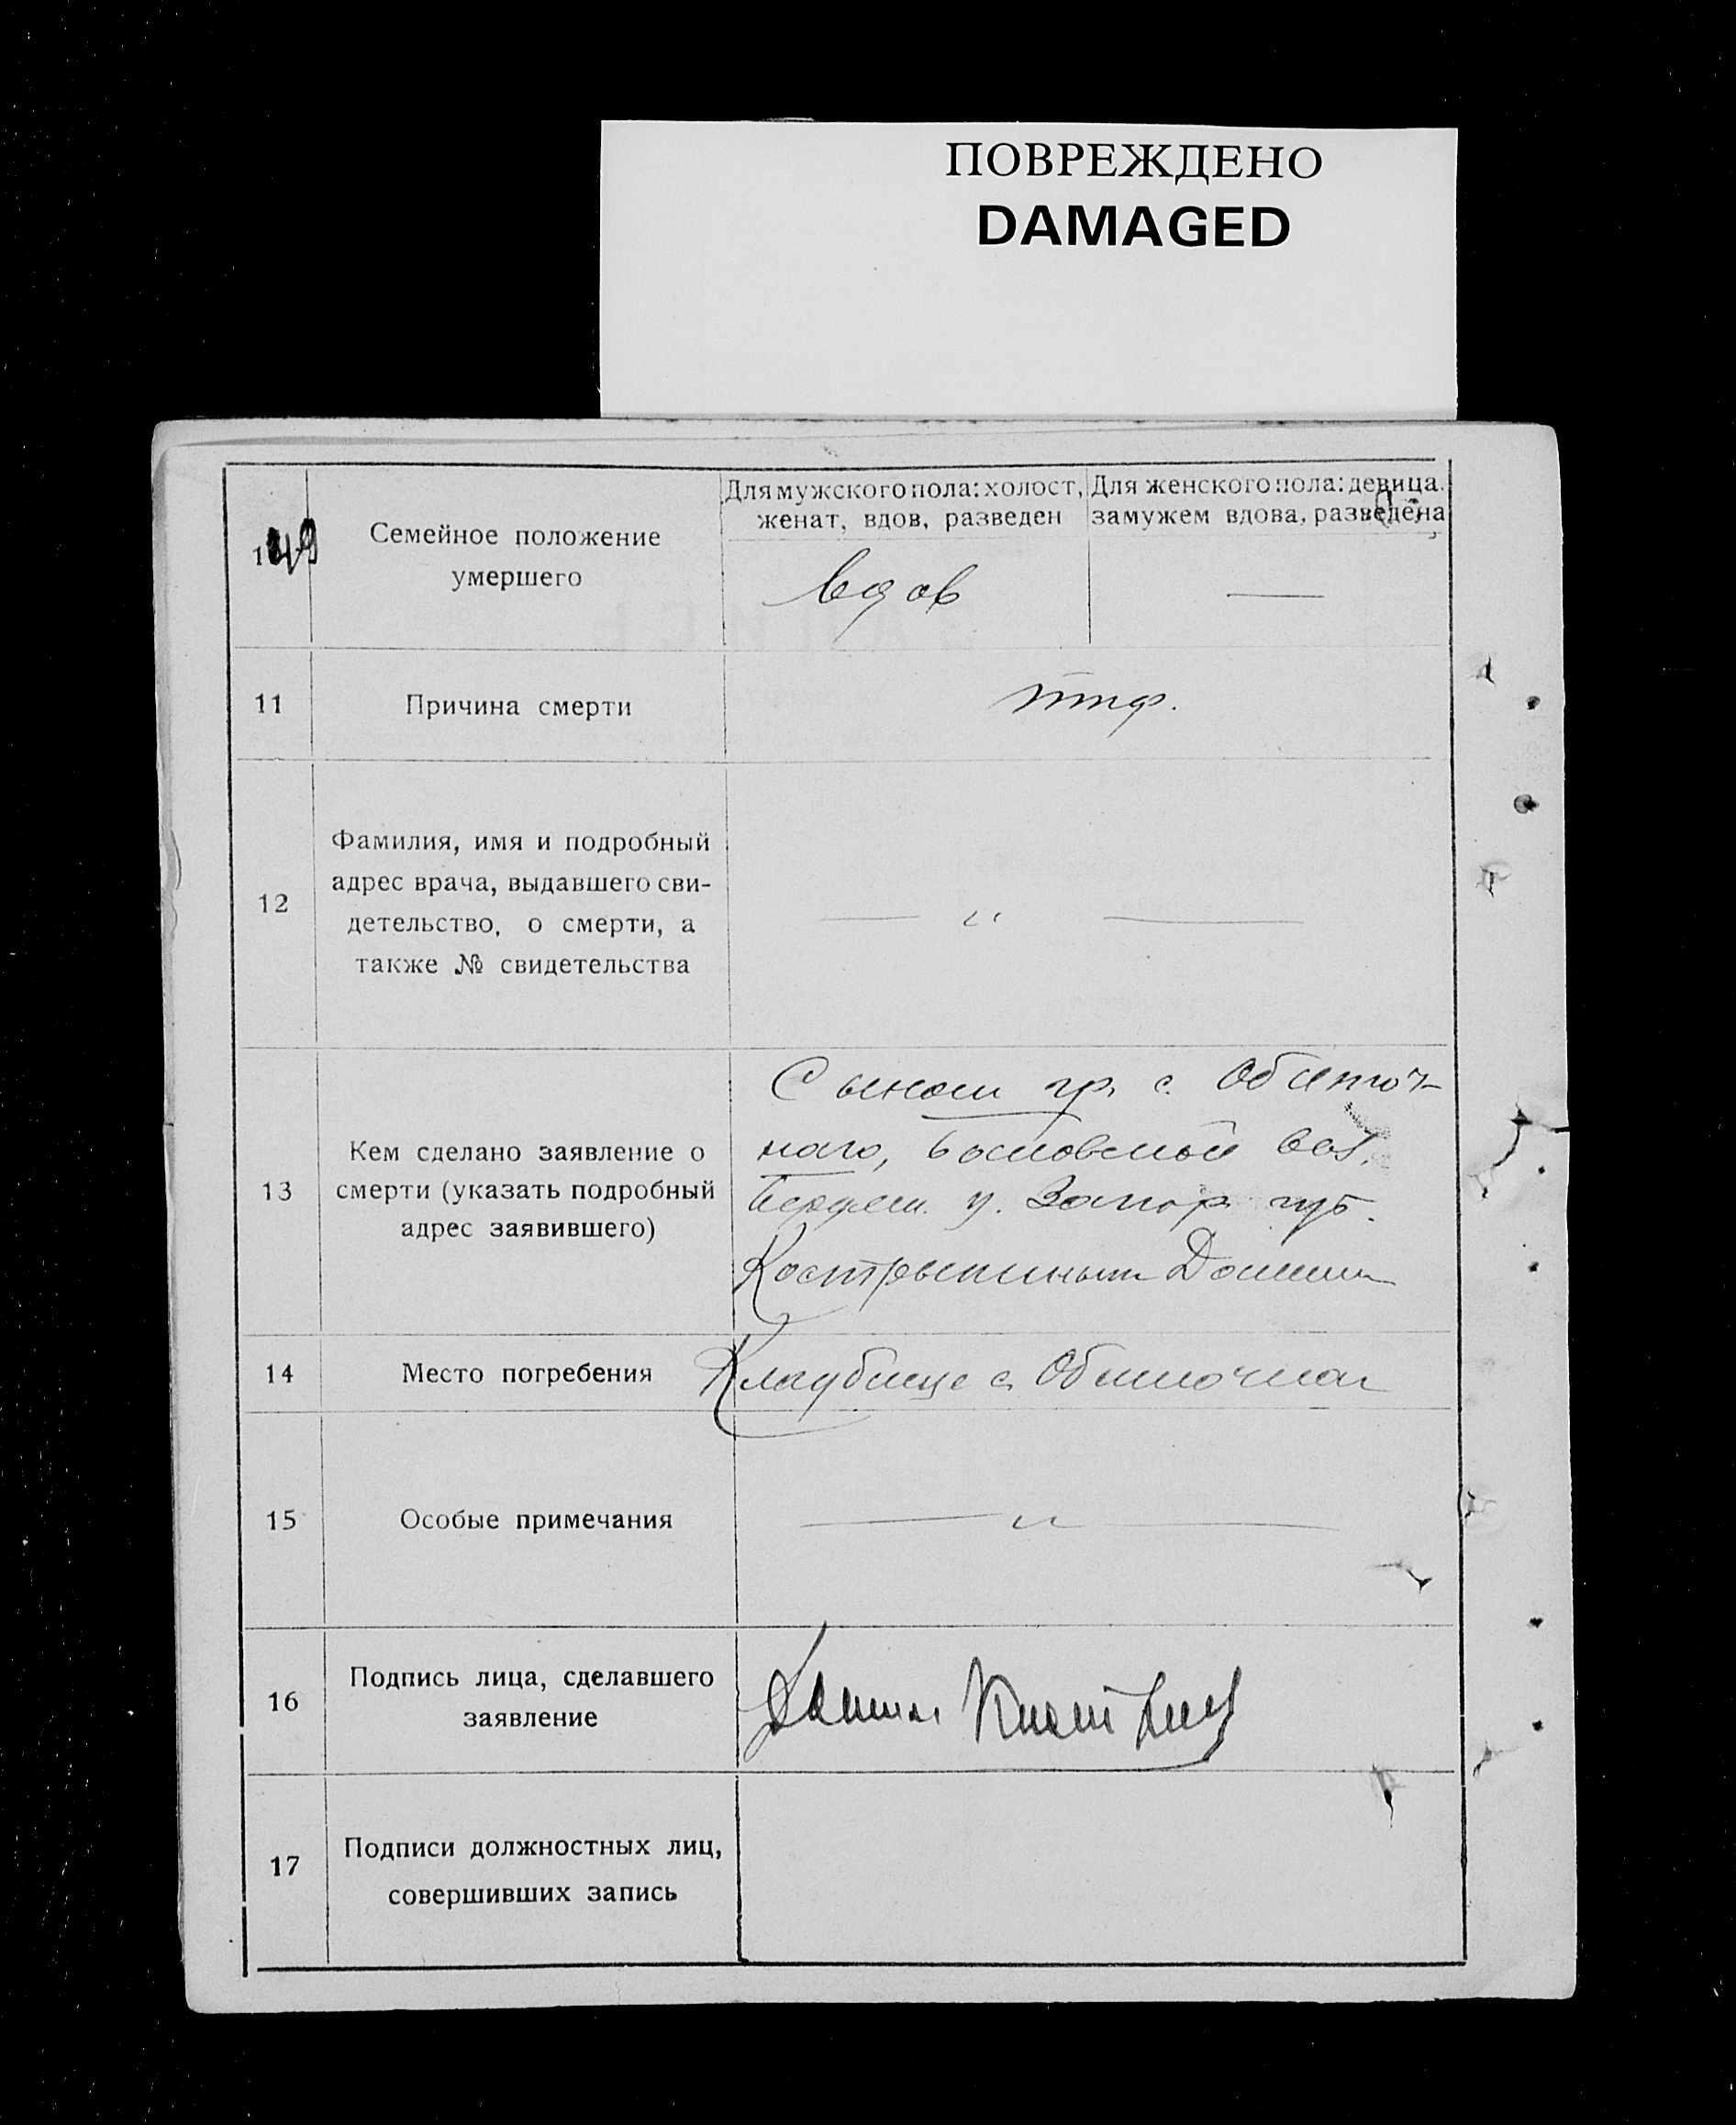 ПОВРЕЖДЕНО
DAMAGED
Семейное положение умершего
Для мужского пола: холост, женат, вдов, разведен
Для женского пола: девица. замужем вдова, разведена
вдов
11
Причина смерти
тиф.
12
Фамилия, имя и подробный
адрес врача, выдавшего сви-
детельство, о смерти, а
также № свидетельства
— „ —
13
Кем сделано заявление о
смерти (указать подробный
адрес заявившего)
Сыном гр. с. Обиточ-
ного, вол.
Бердян. у. Запор губ.
14
Место погребения
Кладбище с. Обиточная
15
Особые примечания
— „ —
16
Подпись лица, сделавшего
заявление
17
Подписи должностных лиц,
совершивших запись